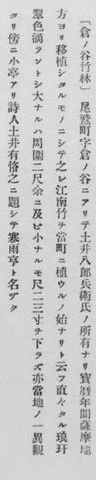 〔倉ノ谷竹林〕　尾鷲町字倉ノ谷ニアリテ土井八郎兵衛氏ノ所有ナリ寶暦年間薩摩地
方ヨリ移植シタルモノニシテ之レ江南竹ヲ當町ニ植ウルノ始ナリト云フ直々タル琅玕
翠色滴ラントシ大ナルハ周圍二尺余ニ及ビ小ナルモ尺二三寸ヲ下ラズ亦當地ノ一異觀
タリ傍ニ小亭アリ詩人土井有恪之ニ題シテ寒雨亭ト名ヅク